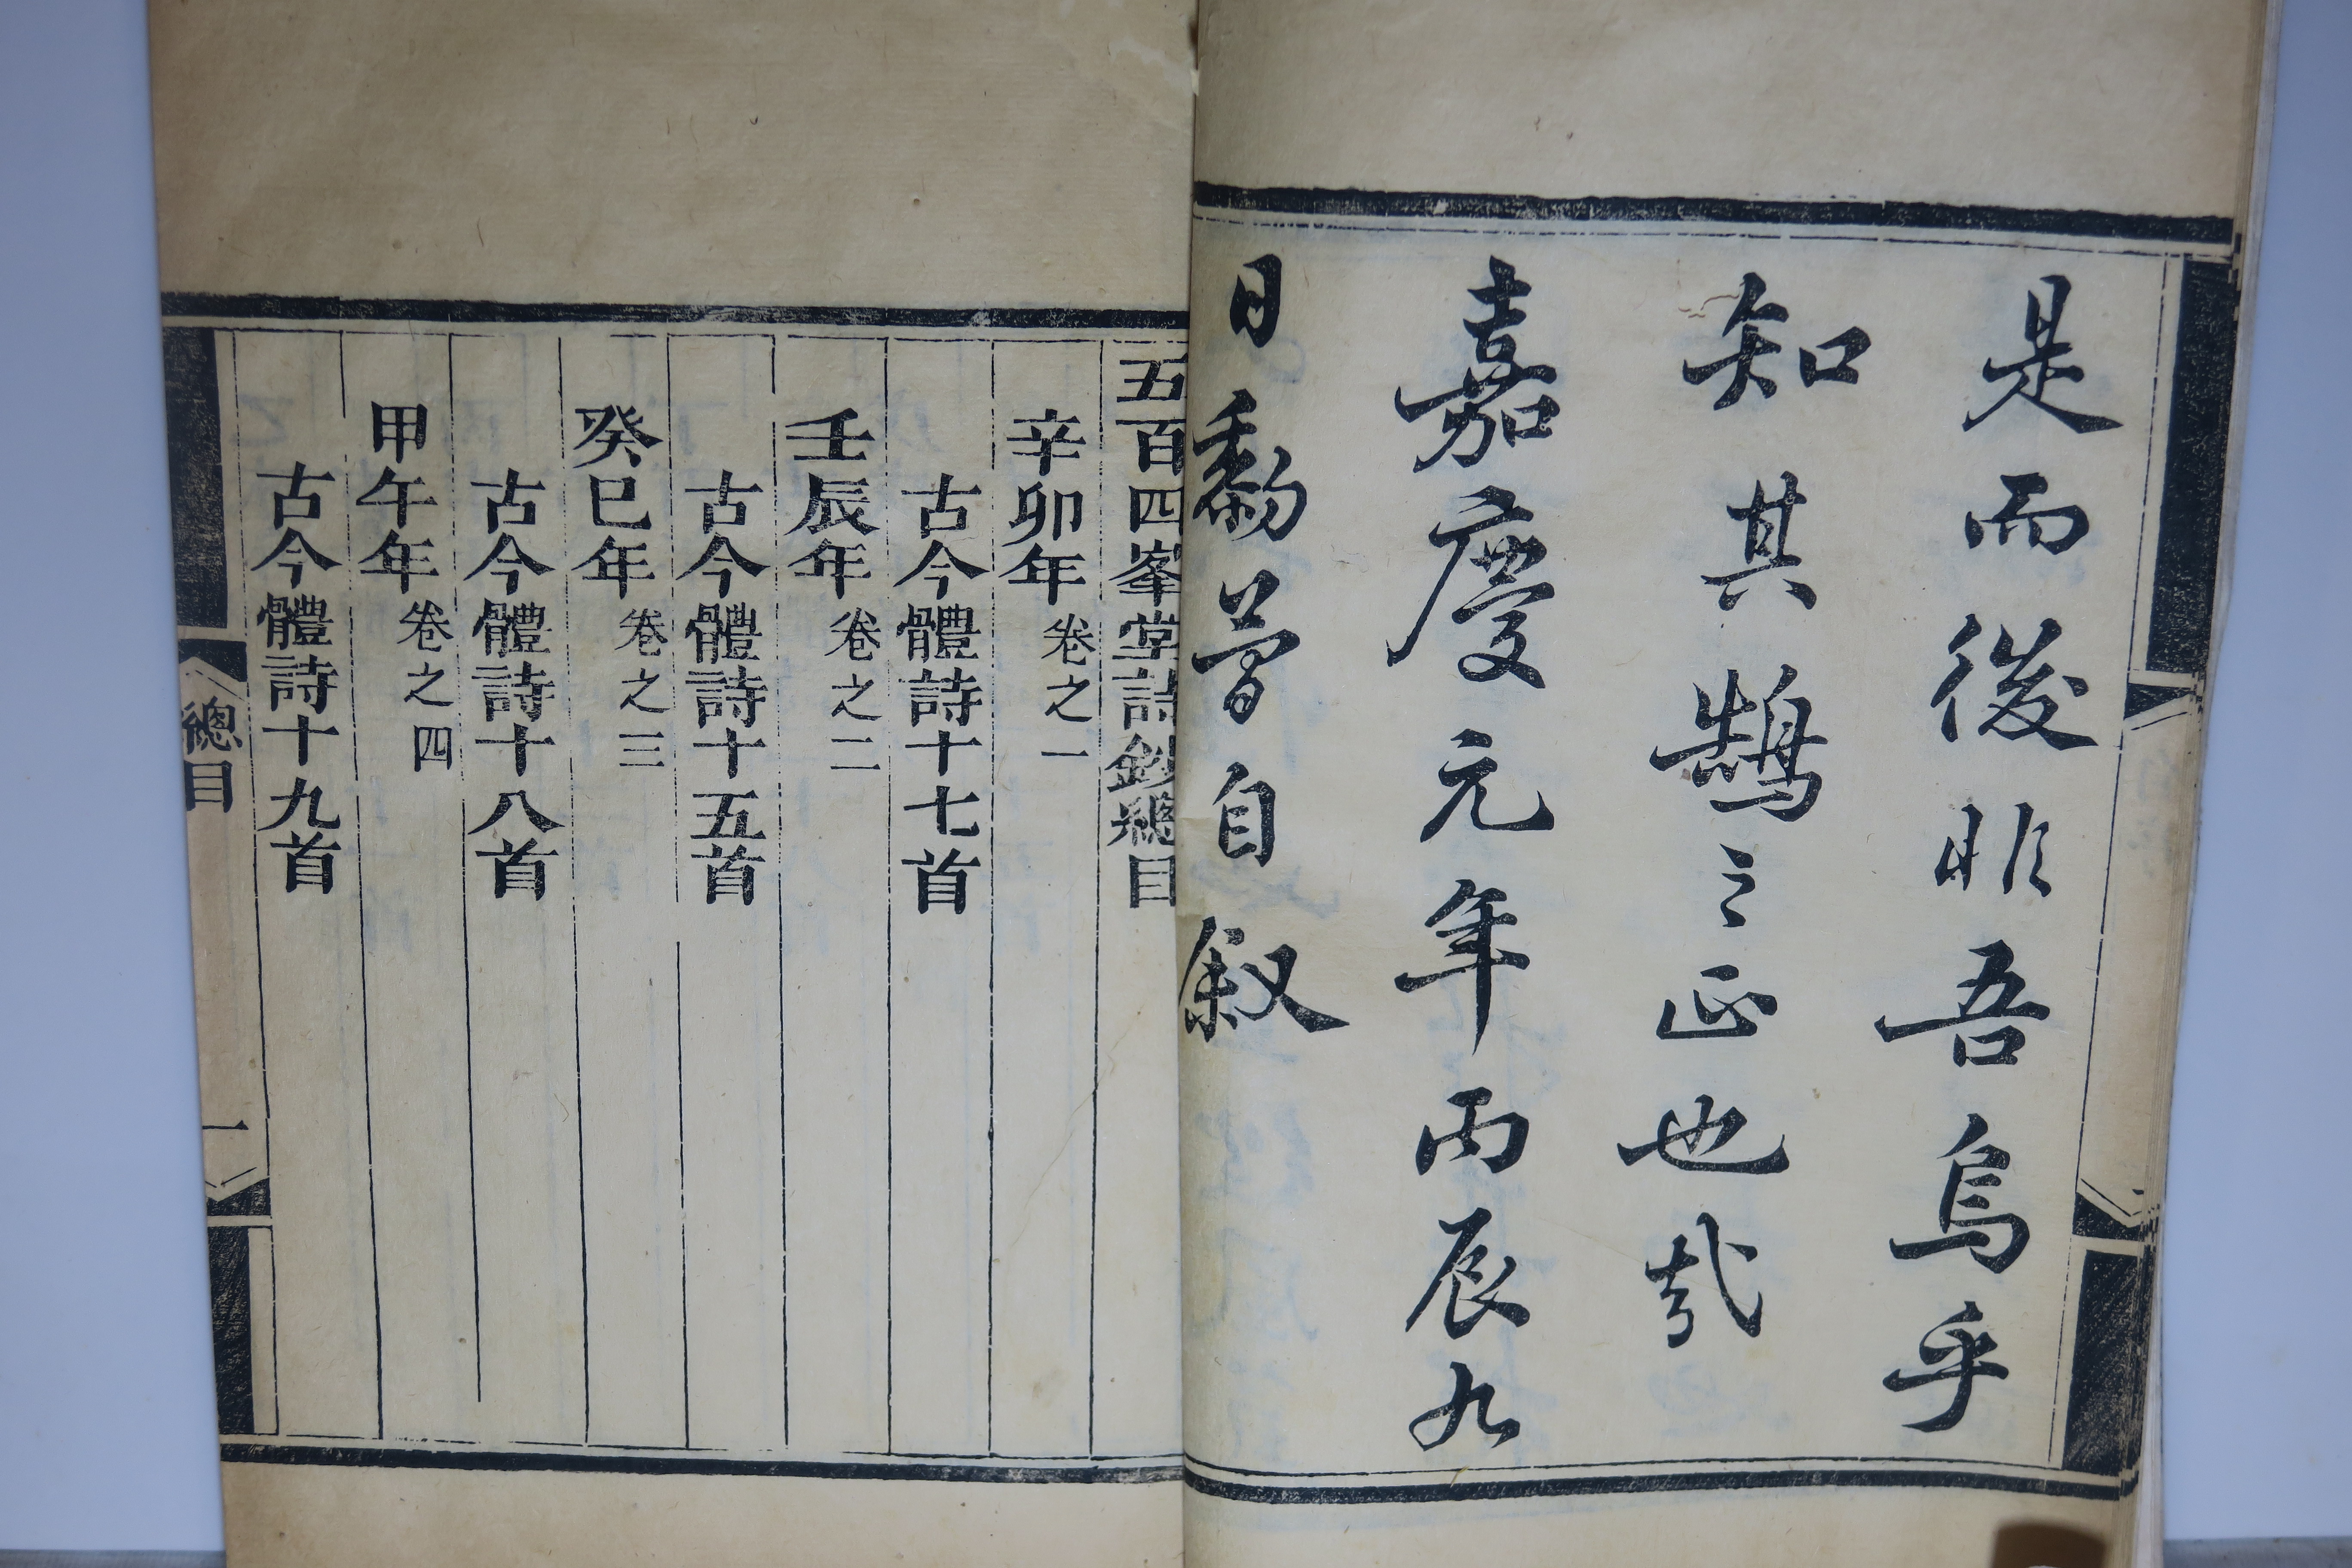 是而後非吾烏乎
知其鵠之正也哉
嘉慶元年丙辰九
日黎簡自叙
五百四峯堂詩鈔總目
辛卯年 卷之一
古今體詩十七首
壬辰年 卷之二
古今體詩十五首
癸巳年 卷之三
古今體詩十八首
甲午年 卷之四
古今體詩十九首
總目 一